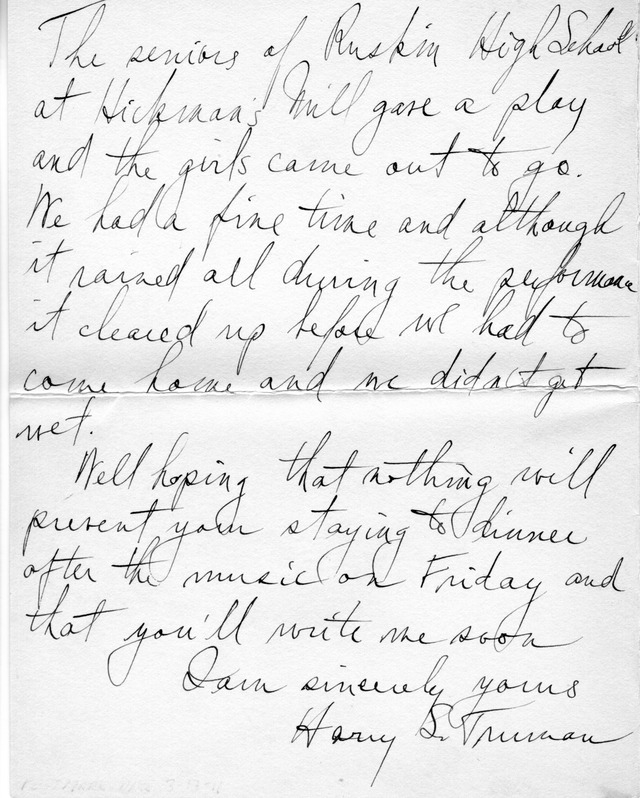 The seniors of Ruskin High School
at Hickman's Mill gave a play
and the girls came out to go.
We had a fine time and although
it rained all during the performance
it cleared up before we had to
come home and we didn't get
wet.
Well hoping that nothing will
prevent your staying to dinner
after the music on Friday and
that you'll write me soon
I am sincerely yours
Harry S. Truman